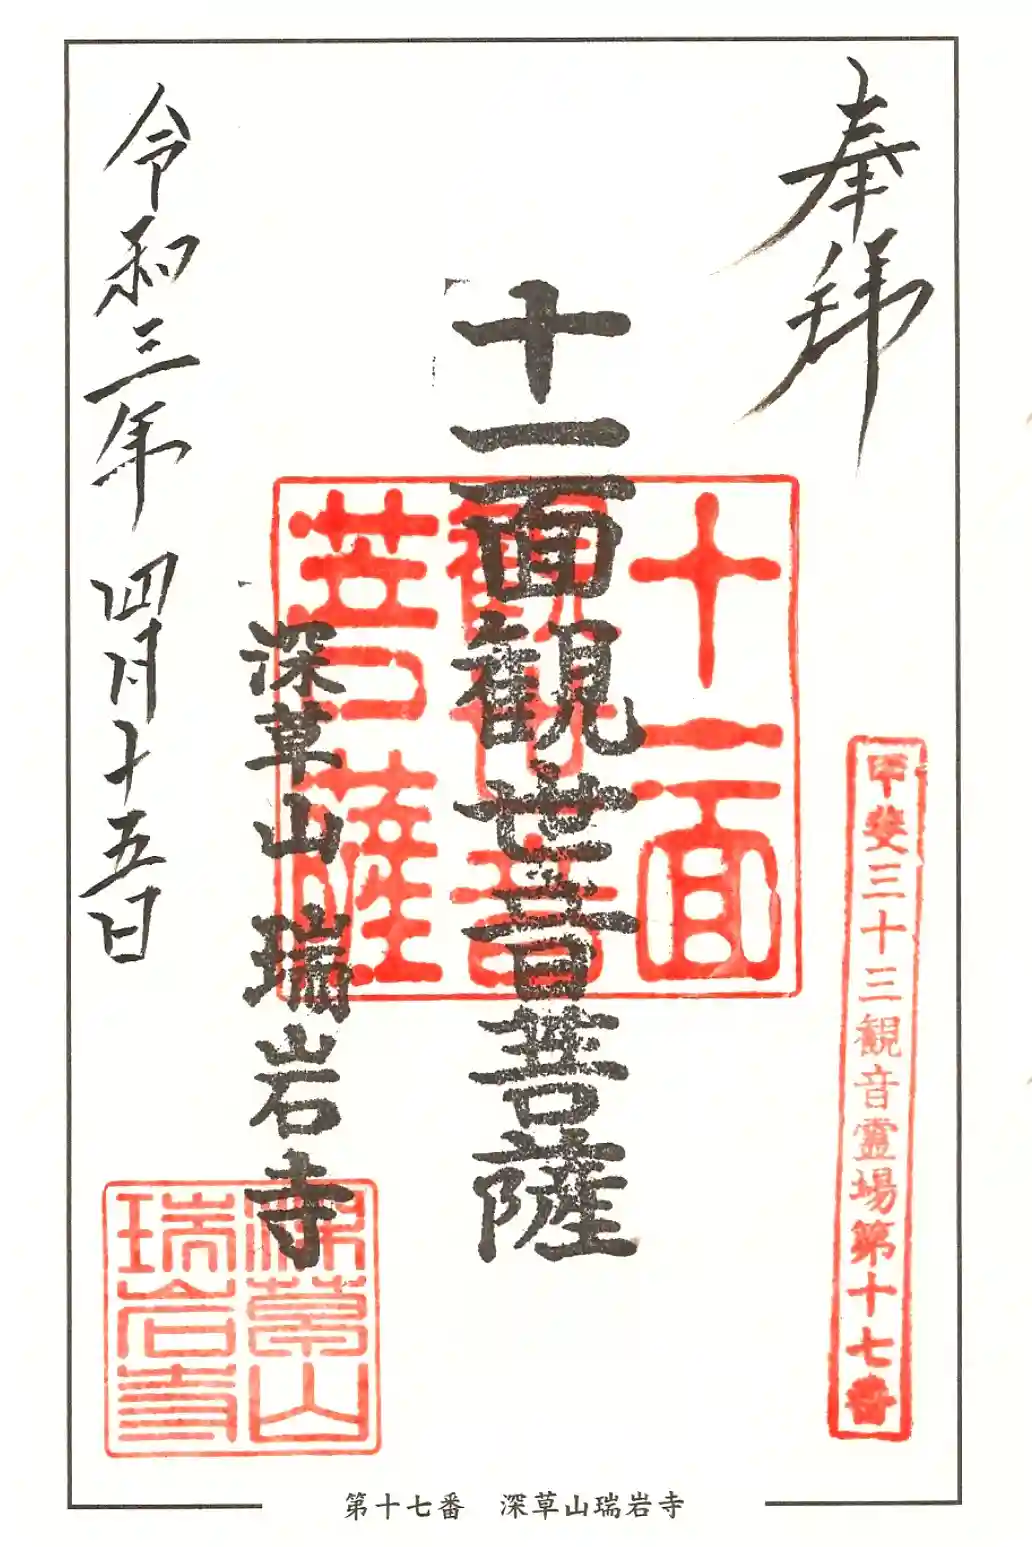 奉拜
甲斐三十三観音霊場第十七番
十一面観世音菩薩
十一面
観世音
菩薩
深草山 瑞岩寺
深草山
瑞岩寺
令和三年 四月十五日
第十七番 深草山瑞岩寺